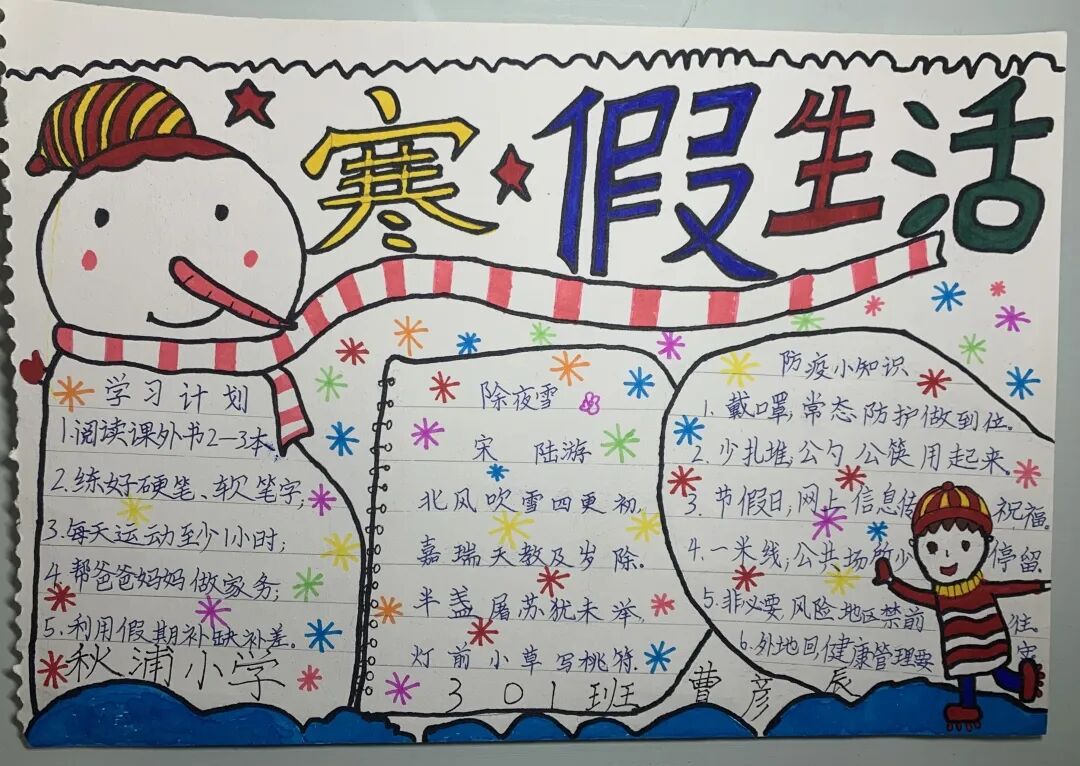 寒假生活
学习计划
1.阅读课外书2—3本;
2.练好硬笔、软笔字;
3.每天运动至少1小时;
4.帮爸爸妈妈做家务;
5.利用假期补缺补差。
秋浦小学
除夜雪
宋 陆游
北风吹雪四更初,
嘉瑞天教及岁除.
半盏屠苏犹未举,
灯前小草写桃符.
301班 曹彦辰
防疫小知识
1.戴口罩,常态防护做到位。
2.少扎堆,公勺公筷用起来。
3.节假日,网上信息传 祝福.
4.一米线,公共场所少 停留.
5.非必要风险地区禁前 往.
6.外地回健康管理要